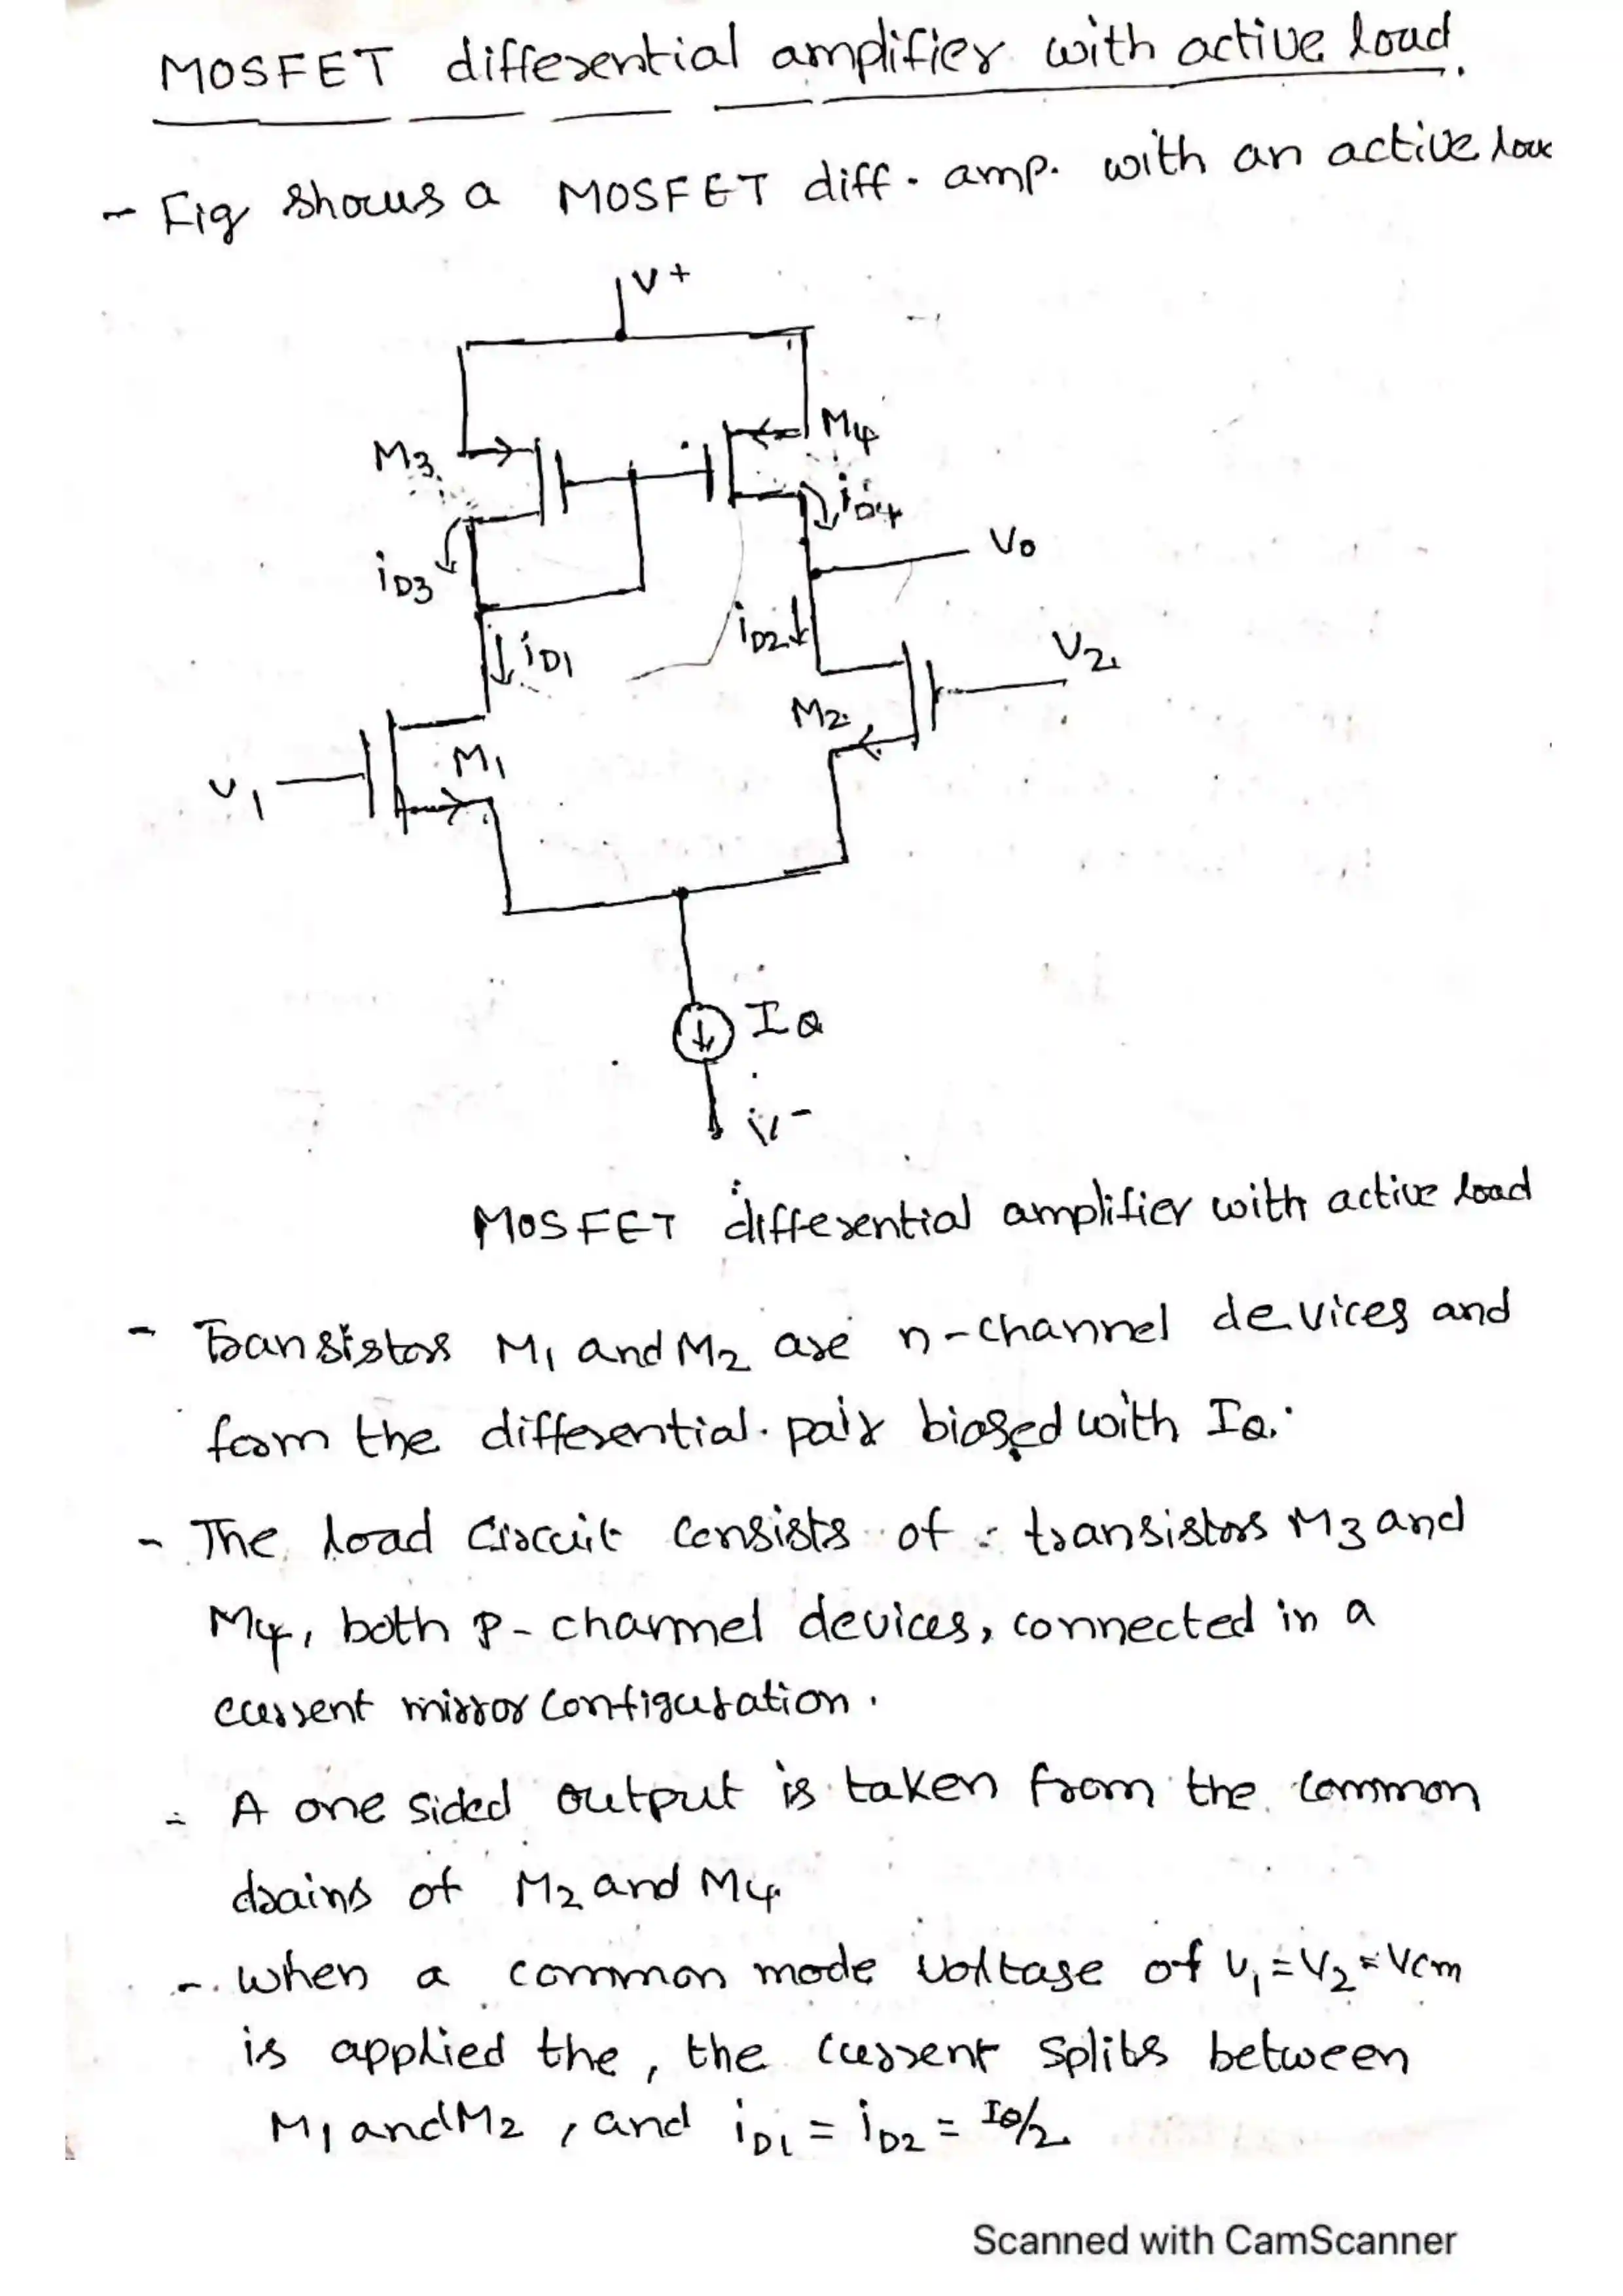 MOSFET differential amplifier with active load.
- Fig shows a MOSFET diff. amp. with an active loa
V+
M3
M4
iD4
iD3
Vo
iD1
iD2
V2
M2
M1
V1
IQ
V-
MOSFET differential amplifier with active load
- Transistors M1 and M2 are n-channel devices and
form the differential pair biased with IQ.
- The load circuit consists of transistors M3 and
M4, both P-channel devices, connected in a
current mirror configuration.
- A one sided output is taken from the common
drains of M2 and M4.
- when a common mode voltage of V1 = V2 = Vcm
is applied the, the current splits between
M1 and M2, and iD1 = iD2 = IQ/2.
Scanned with CamScanner